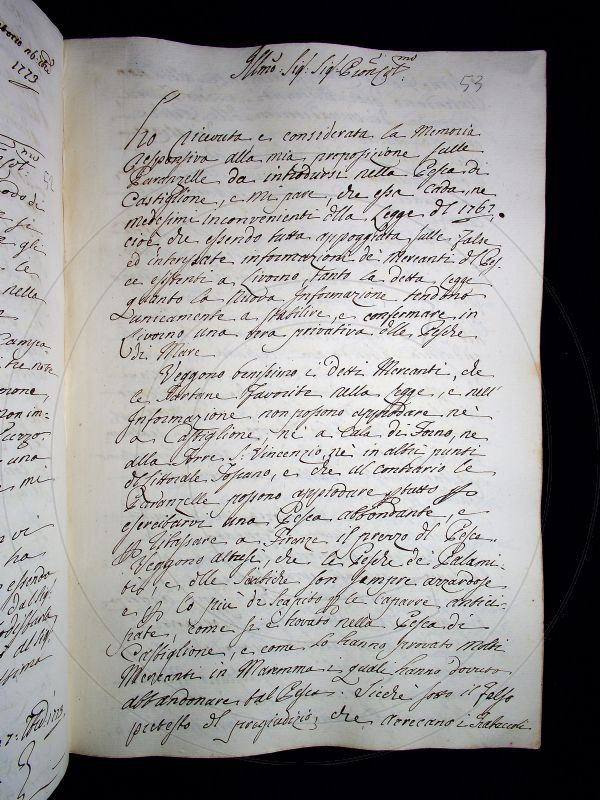 1773
Illmo. Sig. Sig. Pron. Col.mo
53
Ho ricevuta e considerata la Memoria
responsiva alla mia proposizione sulle
Paranzelle da introdursi nella Pesca di
Castiglione, e mi pare, che essa cada, ne
medesimi inconvenienti della Legge del 1767.
cioè, che essendo tutta appoggiata sulle false
ed interessate informazioni de Mercanti di Pes-
ce esistenti a Livorno, tanto la detta Legge
quanto la nuova Informazione tendono
unicamente a stabilire, e confermare in
Livorno una vera privativa delle Pesche
di Mare
Veggono benissimo i detti Mercanti, che
le Tartane favorite nella Legge, e nell'
Informazione non possono approdare nè
a Castiglione, nè a Cala di Forno, ne
alla Torre S. Vincenzio, nè in altri punti
del littorale Toscano, e che al contrario le
Paranzelle possono approdare p tutto p
esercitarvi una Pesca abbondante, e
p ribassare a Firenze il prezzo del Pesce.
Veggono altresì, che le Pesche de Palami-
ti, e delle Sardiche son sempre azzardose
e p lo più di scapito p le caparre antici-
pate, come si è trovato nella Pesca di
Castiglione, e come lo hanno provato molti
Mercanti in Maremma i quali hanno dovuto
abbandonare tal Pesca. Sicchè sotto il falso
pretesto del pregiudizio, che arrecano i